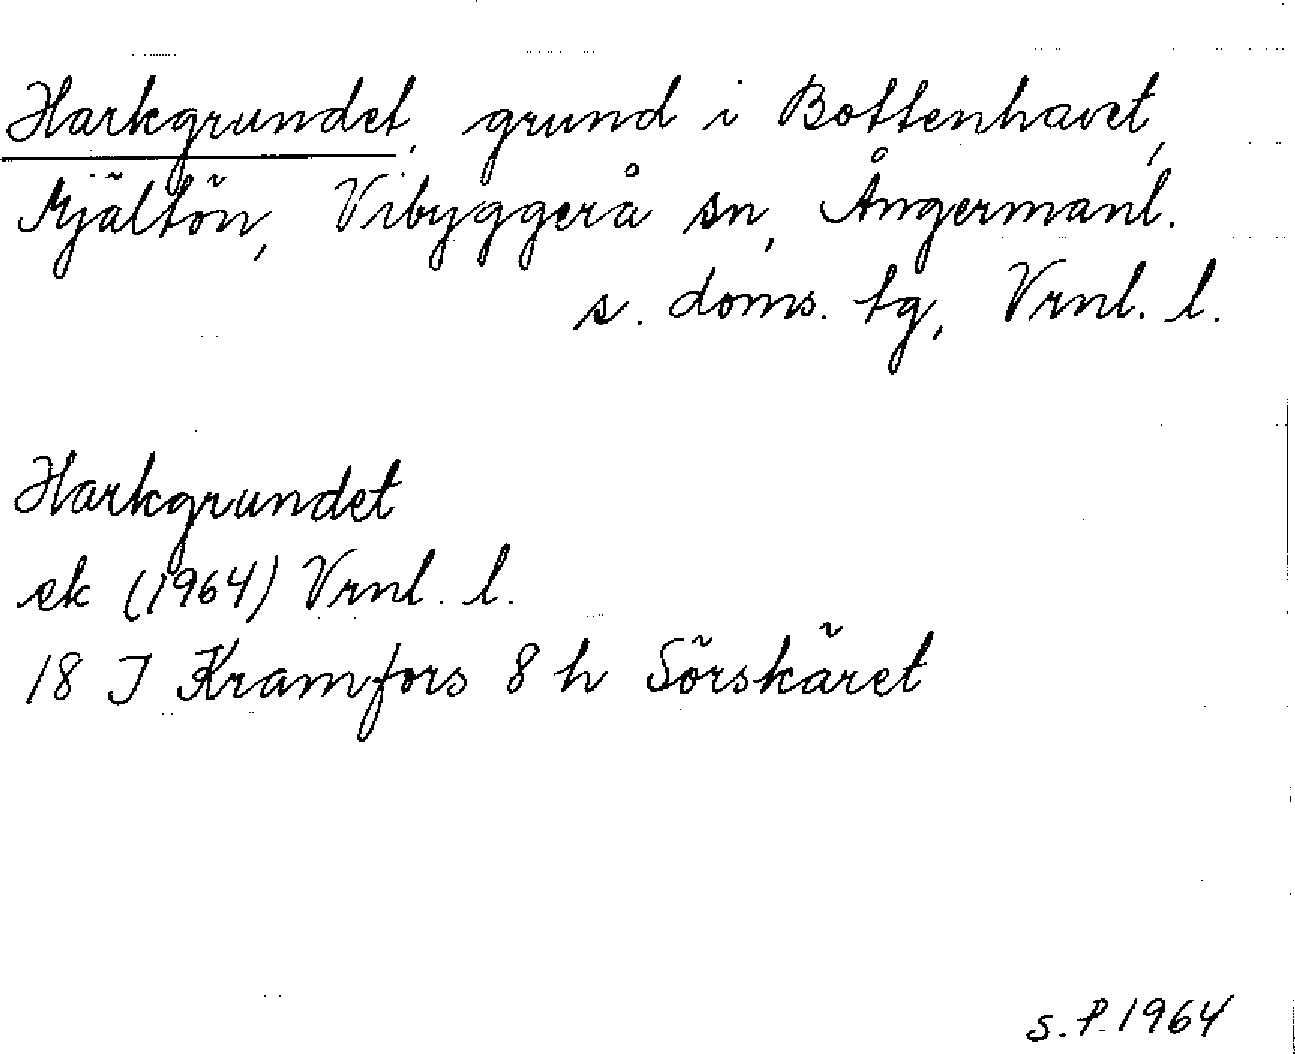 Harkgrundet, grund i Bottenhavet,
Mjältön, Vibyggerå sn, Ångermanl.
s. doms. tg, Vrnl. l.
Harkgrundet
ek (1964) Vrnl. l.
18 I Kramfors 8 h Sörskäret
S. P. 1964